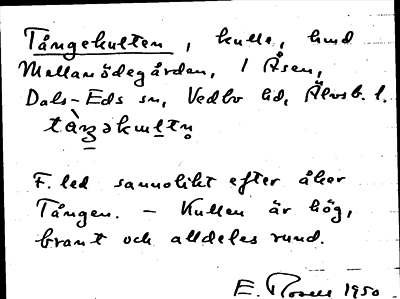 Tångekulten, kulle, hmd
Mellanödegården, 1 Åsen,
Dals-Eds sn, Vedbo hd, Älvsb. l.
F. led sannolikt efter åker
Tången. - Kullen är hög,
brant och alldeles rund.
E. 1950